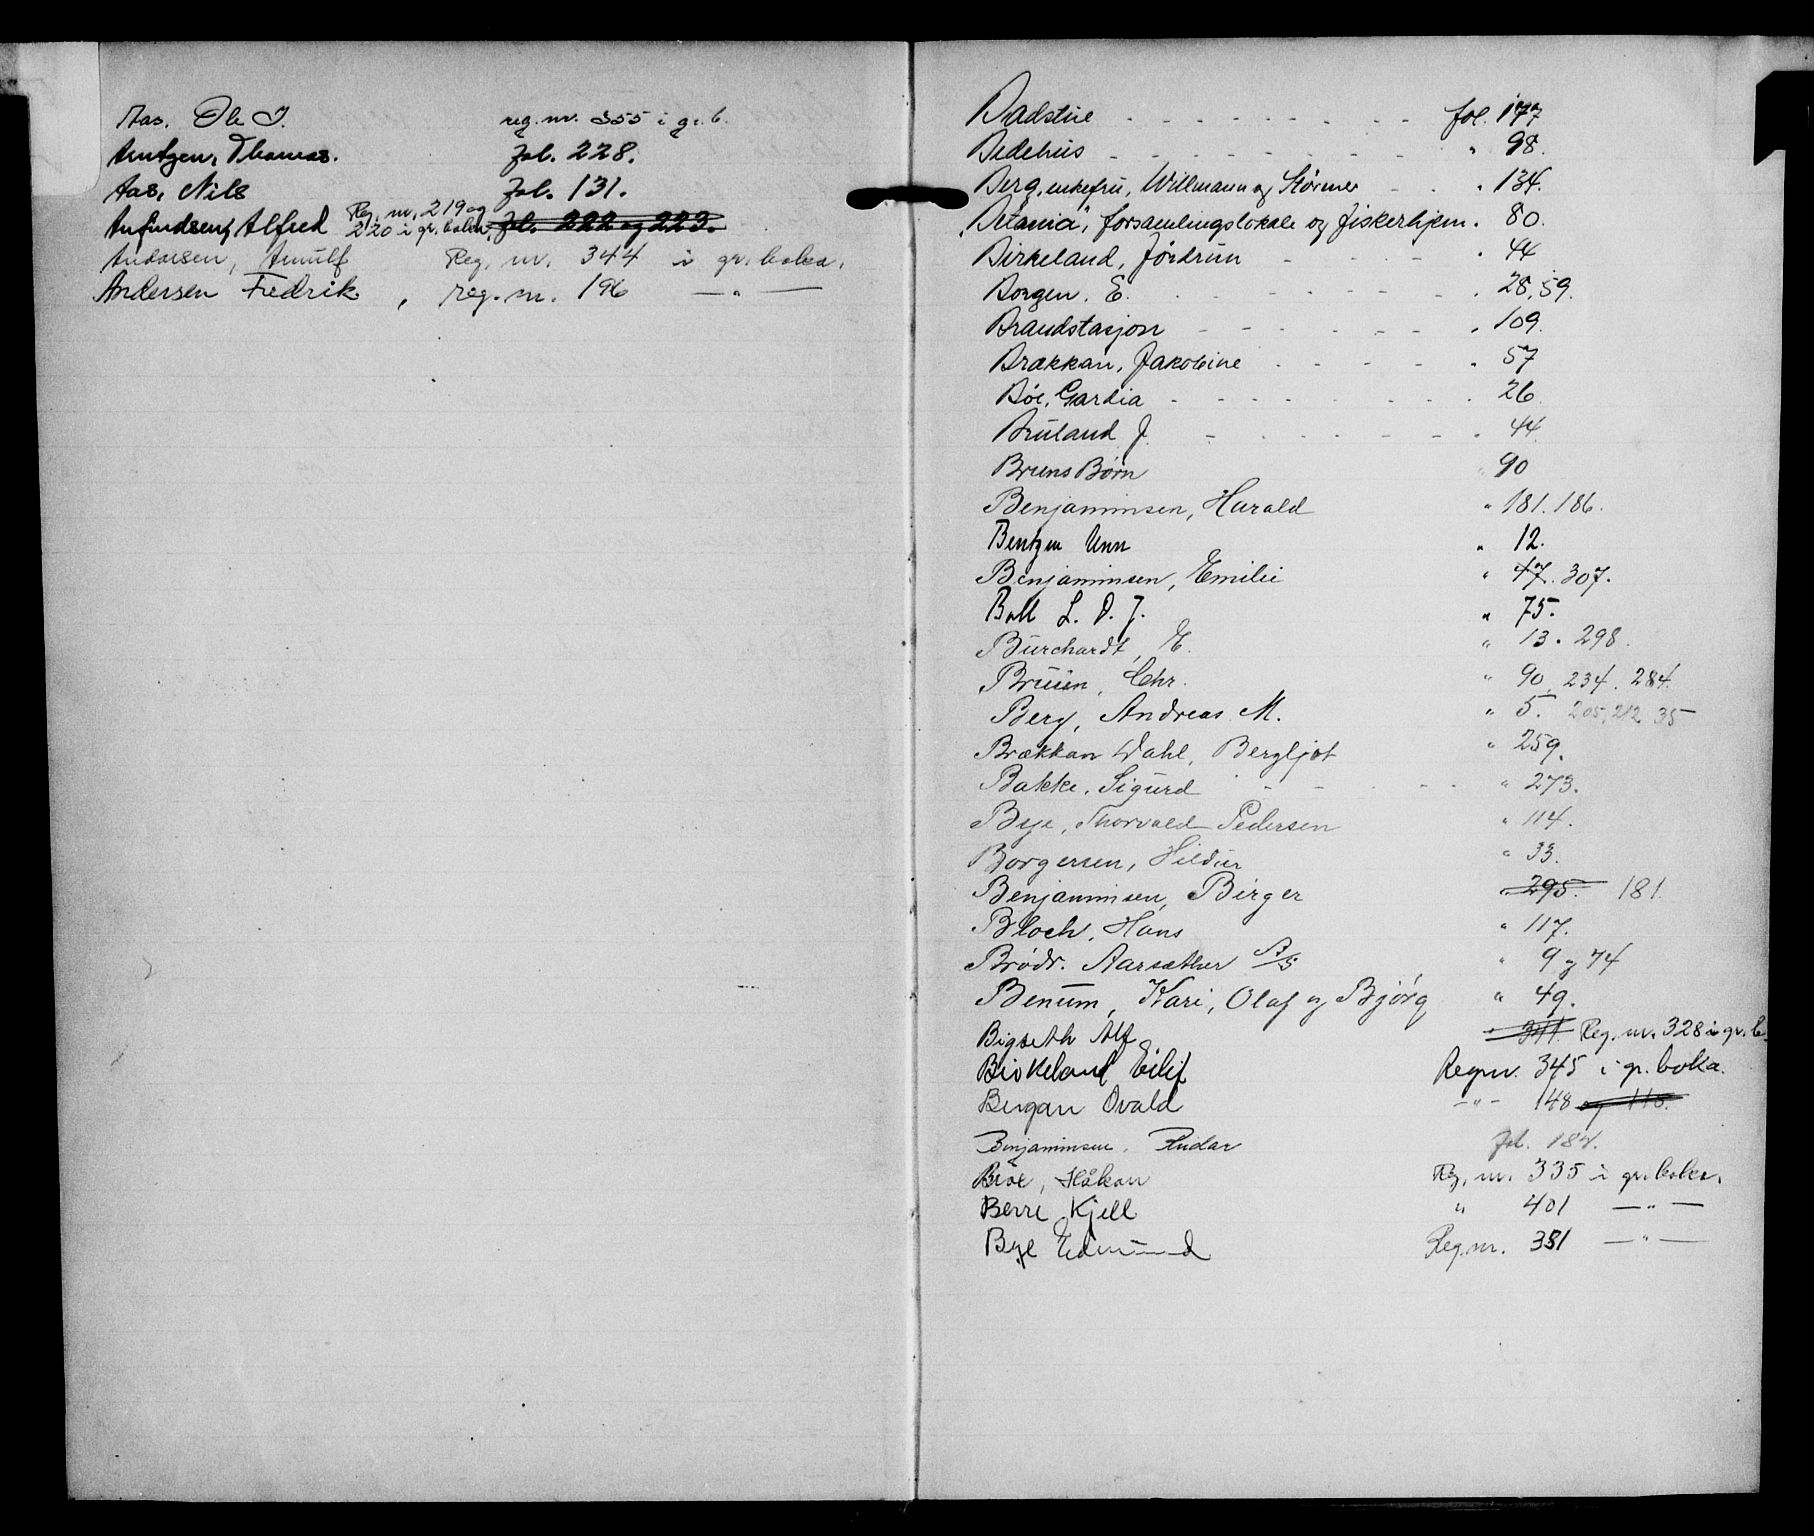 Aas. Ole J. reg. nr. 355 i gr. b.
Arntzen, Thomas. fol. 228.
Aas, Nils fol. 131.
Anfindsen, Alfred Reg. nr. 219 og 220 i gr. boka, fol. 222 og 223.
Andorsen, Arnulf Reg. nr. 344 i gr. boka.
Andersen Fredrik, reg. nr. 196 — " —
Badstue fol. 177
Bedehus " 98.
Berg, enkefru, Willmann og Störmer " 134.
"Betania", forsamlingslokale og fiskerhjem. 80.
Birkeland, Jördrun " 44
Borgen, E. " 28, 59.
Brandstasjon " 109.
Brækkan, Jakobine " 57
Böe, Gardia " 26.
Bruland J. " 44.
Bruns Børn " 90
Benjaminsen, Harald " 181. 186.
Bentzen Unn " 12.
Benjaminsen, Emilie " 47. 307.
Boll L. O. J. " 75.
Burchardt, E. " 13. 298.
Bruun, Chr. " 90, 234. 284.
Berg, Andreas M. " 5. 205, 212 35
Brækkan Dahl, Bergljot " 259.
Bakke, Sigurd " 273.
Bye, Thorvald Pedersen " 114.
Borgersen, Hildur " 33.
Benjaminsen, Birger " 295. 181.
Bloch, Hans " 117.
Brödr. Aarsæther A/S " 9 og 74
Benum, Kari, Olaf og Bjørg " 49.
Bigseth Alf " 311. Reg. nr. 328 i gr. b.
Birkeland Eilif Regnr. 345 i gr. boka.
Bergan Ovald — " — 148 og 115.
Benjaminsen, Reidar fol. 184.
Böe, Håkon Reg. nr. 335 i gr. boka.
Berre Kjell " 401 — " —
Bye Edmund Reg. nr. 351 — " —